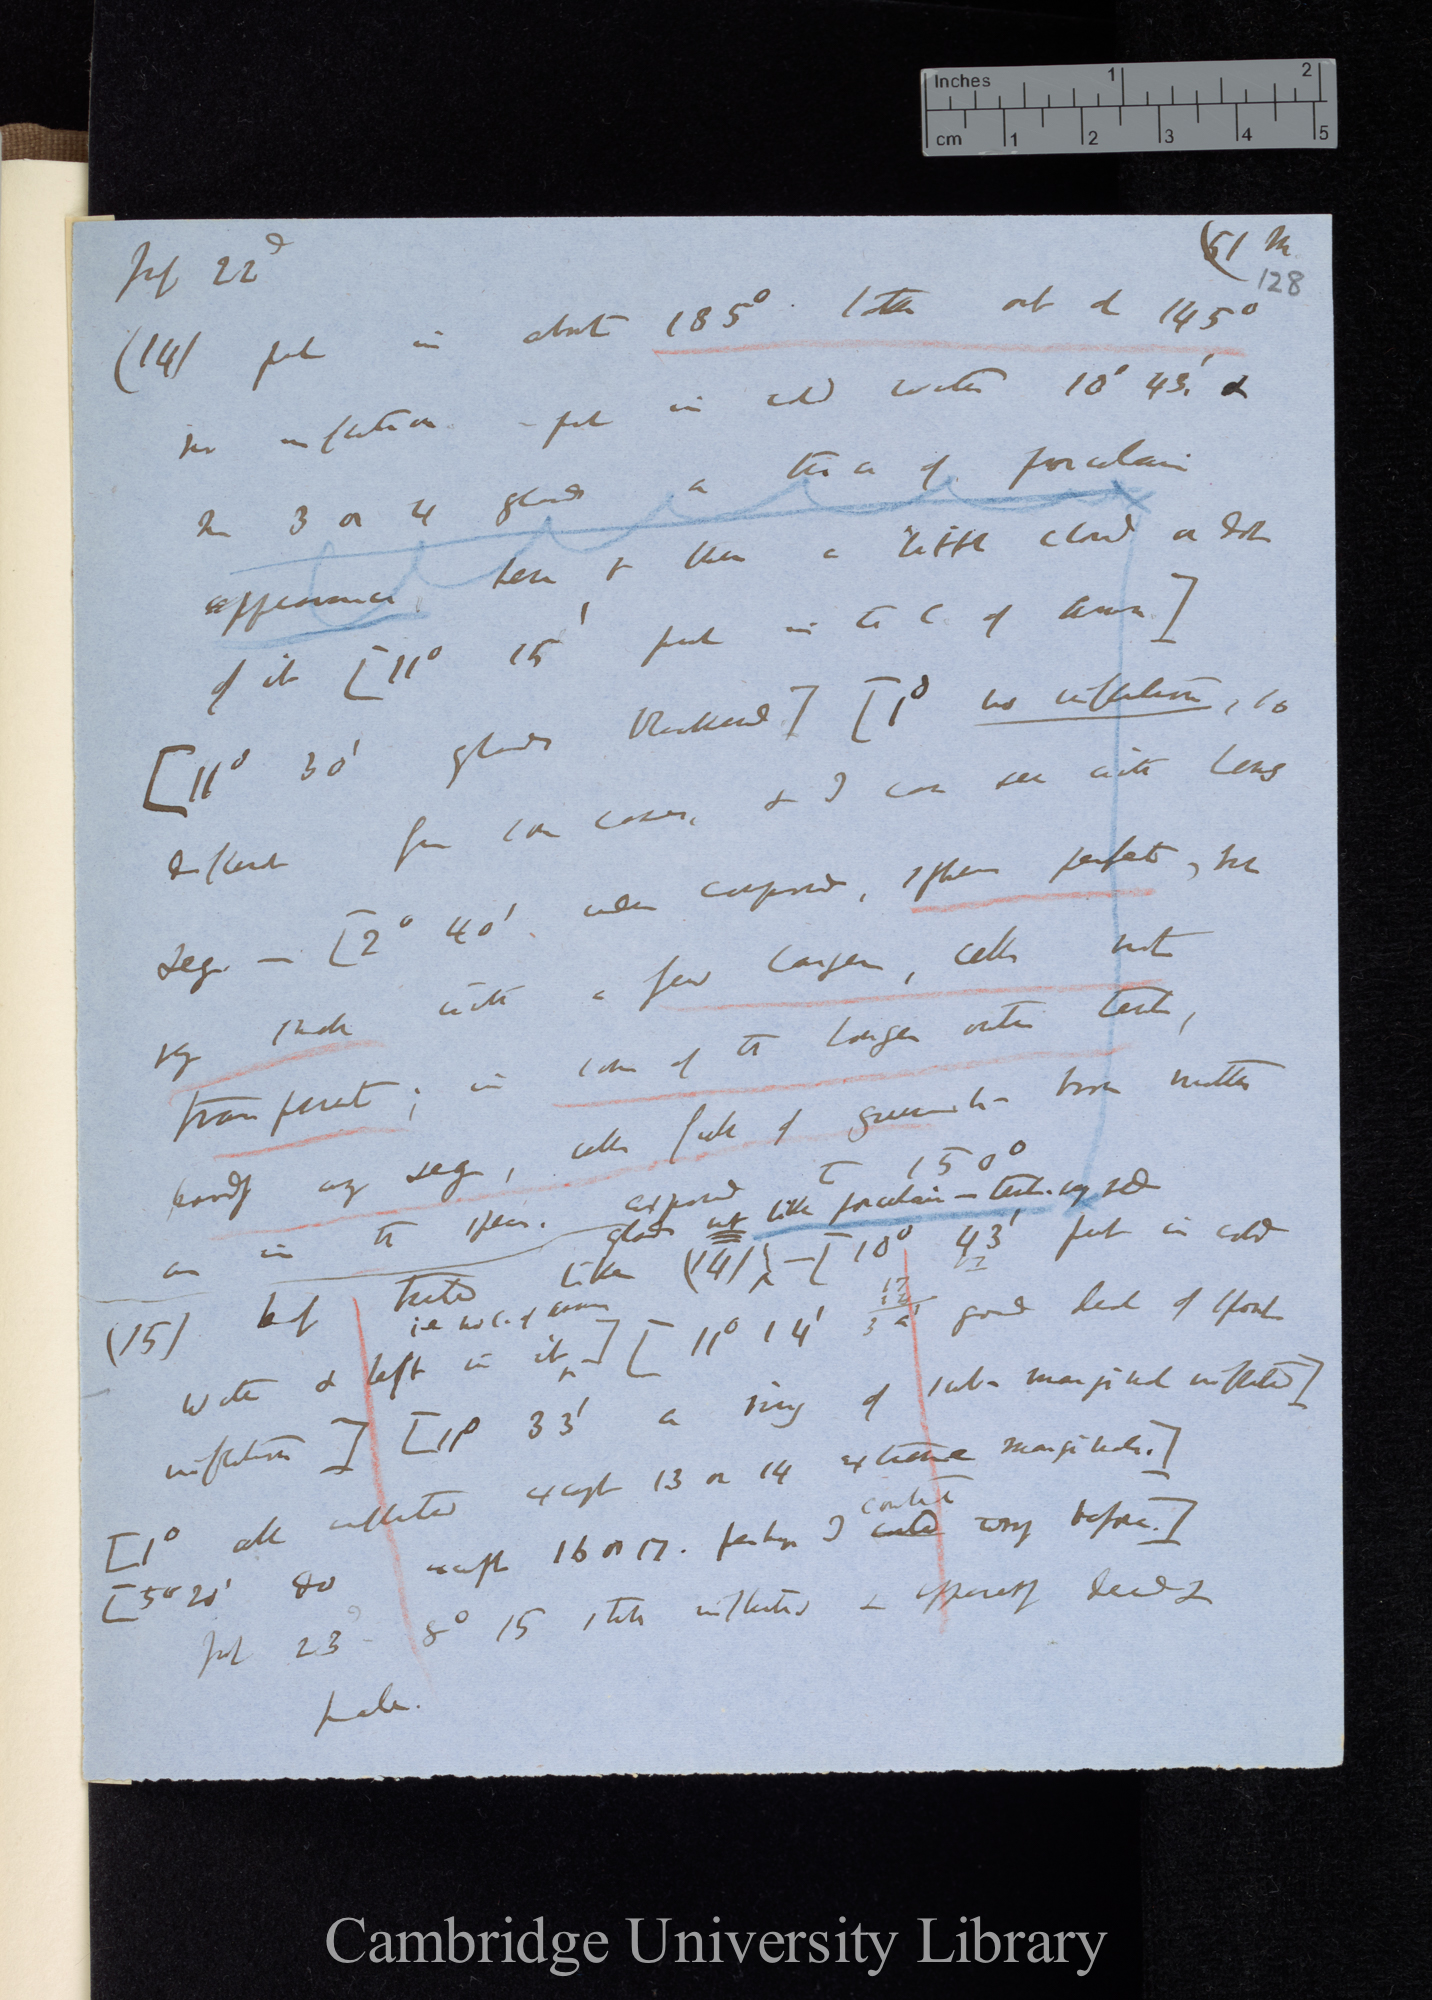 Inches 1 2
cm 1 2 3 4 5
(51
128
22d
(14) put in about 185° taken out at 145°
no inflection - put in cold water 10° 43' &
in 3 or 4 glands a of porcelain
appearance, here & there a little cloud or dot
of it [11° 15' put in the C. of Ammon]
[11° 30' glands blackened] [1° no inflection, so
different from common cases, & I can see with lens
seg. — [2° 40' when compared, spheres perfect, but
very much with a few larger, cells not
transparent; in some of the longer outer tent,
hardly any seg, cells full of greenish-brown matter
as in the spheres. exposed to 150°
glands not like porcelain — tent. very red
(15) leaf treated like (14) — [10° 43' put in cold
i.e. no C. of Ammon
17
14
3
water & left in it] [11° 14' good deal of spont
inflection] [11° 33' a ring of sub-marginal inflected]
[1° all inflected except 13 or 14 extreme marginals.]
[5° 20' do except 16 or 17. perhaps I counted wrong before.]
23d 8° 15 still inflected & apparently dead &
pale.
Cambridge University Library